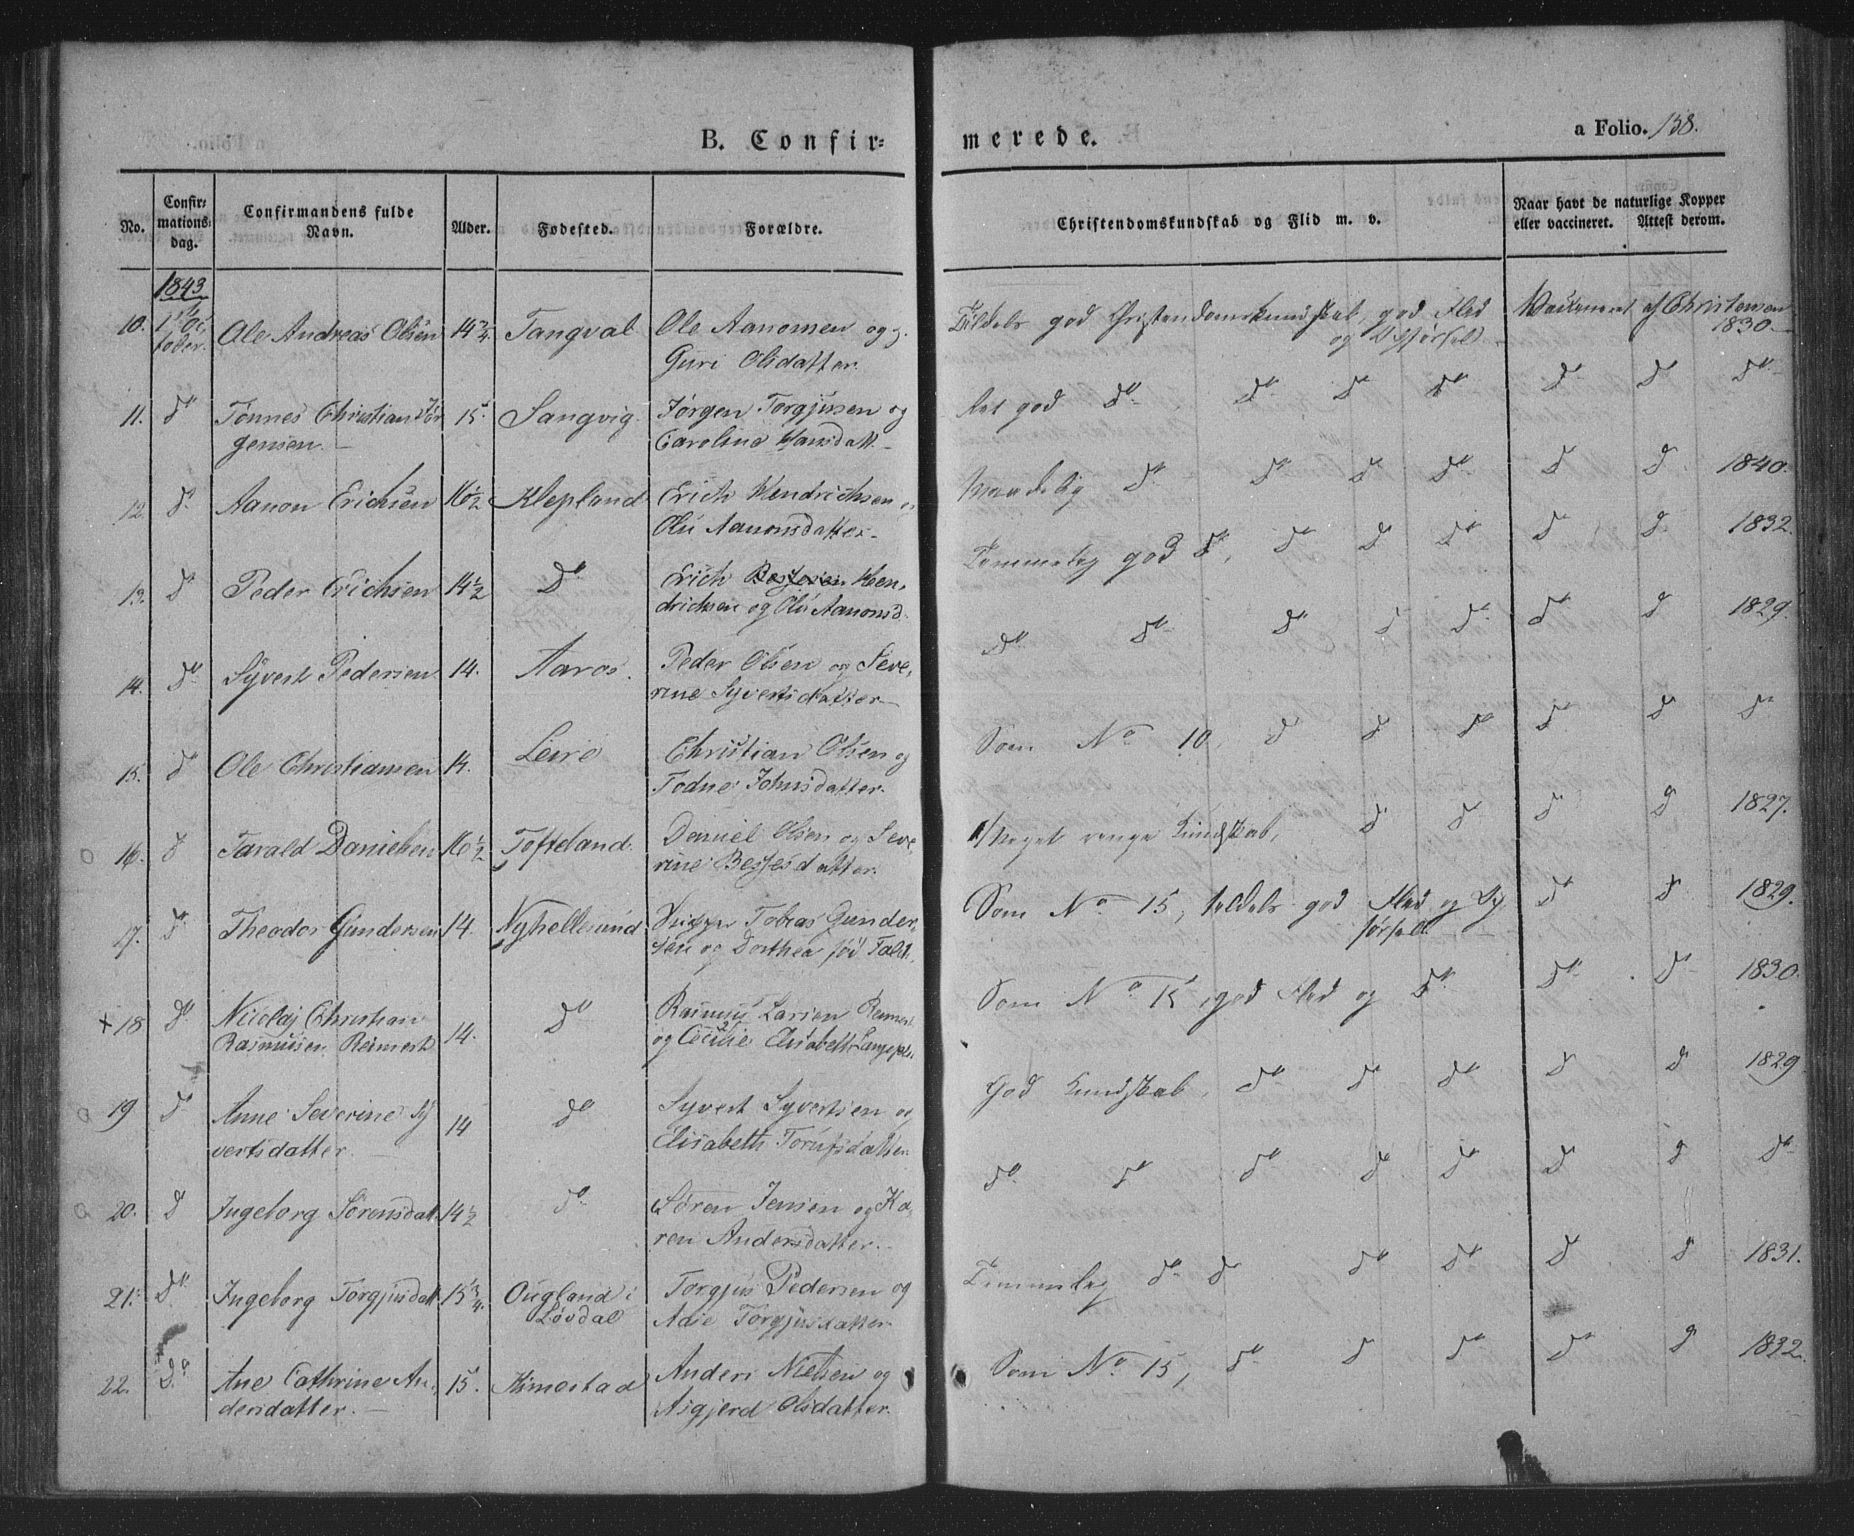 B. Confir=
merede.
a Folio. 138.
No.
Confir= mations= dag.
Confirmandens fulde Navn.
Alder.
Fødested.
Forældre.
Christendomskundskab og Flid m. v.
Naar havt de naturlige Kopper eller vaccineret. Attest derom.
1843
10. 1ste Oc Ole Andreas Olsen 14 3/4. Tangval Ole Aanonsen og
tober. Guri Olsdatter.
Tildels god Christendomskundskab, god Flid Vaccineret af Christensen
og Opførsel. 1830
11. do Tønnes Christian Jør 15. Sangvig. Jørgen Torgjusen og
gensen. Caroline Hansdatt.
god do do do do do do do
12. do Aanon Erichsen 16 1/2 Klepland Erich Hendrichsen
Olu Aanonsdatter.
Maadelig do do do do do do 1840.
13. do Peder Erichsen 14 1/2 do Erich Hen,
drichsen og Olu Aanonsd.
Temmelig god do, do do do do do 1832.
14. do Syvert Pedersen 14. Aaros. Peder Olsen og Seve,
rine Syvertsdatter
do do do do do do do 1829.
15. do Ole Christiansen 14. Leire Christian Olsen og
Todne Johnsdatter.
Som No 10, do do do do do do
16. do Tarald Danielsen 16 1/2 Tofteland. Daniel Olsen og Seve
rine Besfesdatter.
Meget ringe Kundskab, do do do do 1827.
17. do Theodor Gundersen 14. Nyhellesund Tobias Gunder,
sen og Dorthea
Som No 15, tildels god Flid og Op do do 1829.
førsel.
18 do Nicolaj Christian do Rasmus Larsen
Rasmusen Reimert 14. og Cecilie Elisabeth
Som No 15, god Flid og do do do 1830.
19 do Anne Severine Sy 14 do Syvert Syvertsen og
vertsdatter. Elisabeth
God Kundskab, do do do do do 1829
20. do Ingeborg Sørensdatt. 14 1/2 do Søren Jensen og Ka,
ren Andersdatter.
do do do do do do do do
21. do Ingeborg Torgjusdatt. 13 3/4. Ougland i Torgjus Pedersen og
Løvdal Adie Torgjusdatter
Temmelig do do do do do do 1831.
22. do Ane Cathrine An, 15. Kimestad Anders Nielsen og
dersdatter. Asgjerd Olsdatter.
Som No 15, do do do do do 1832.